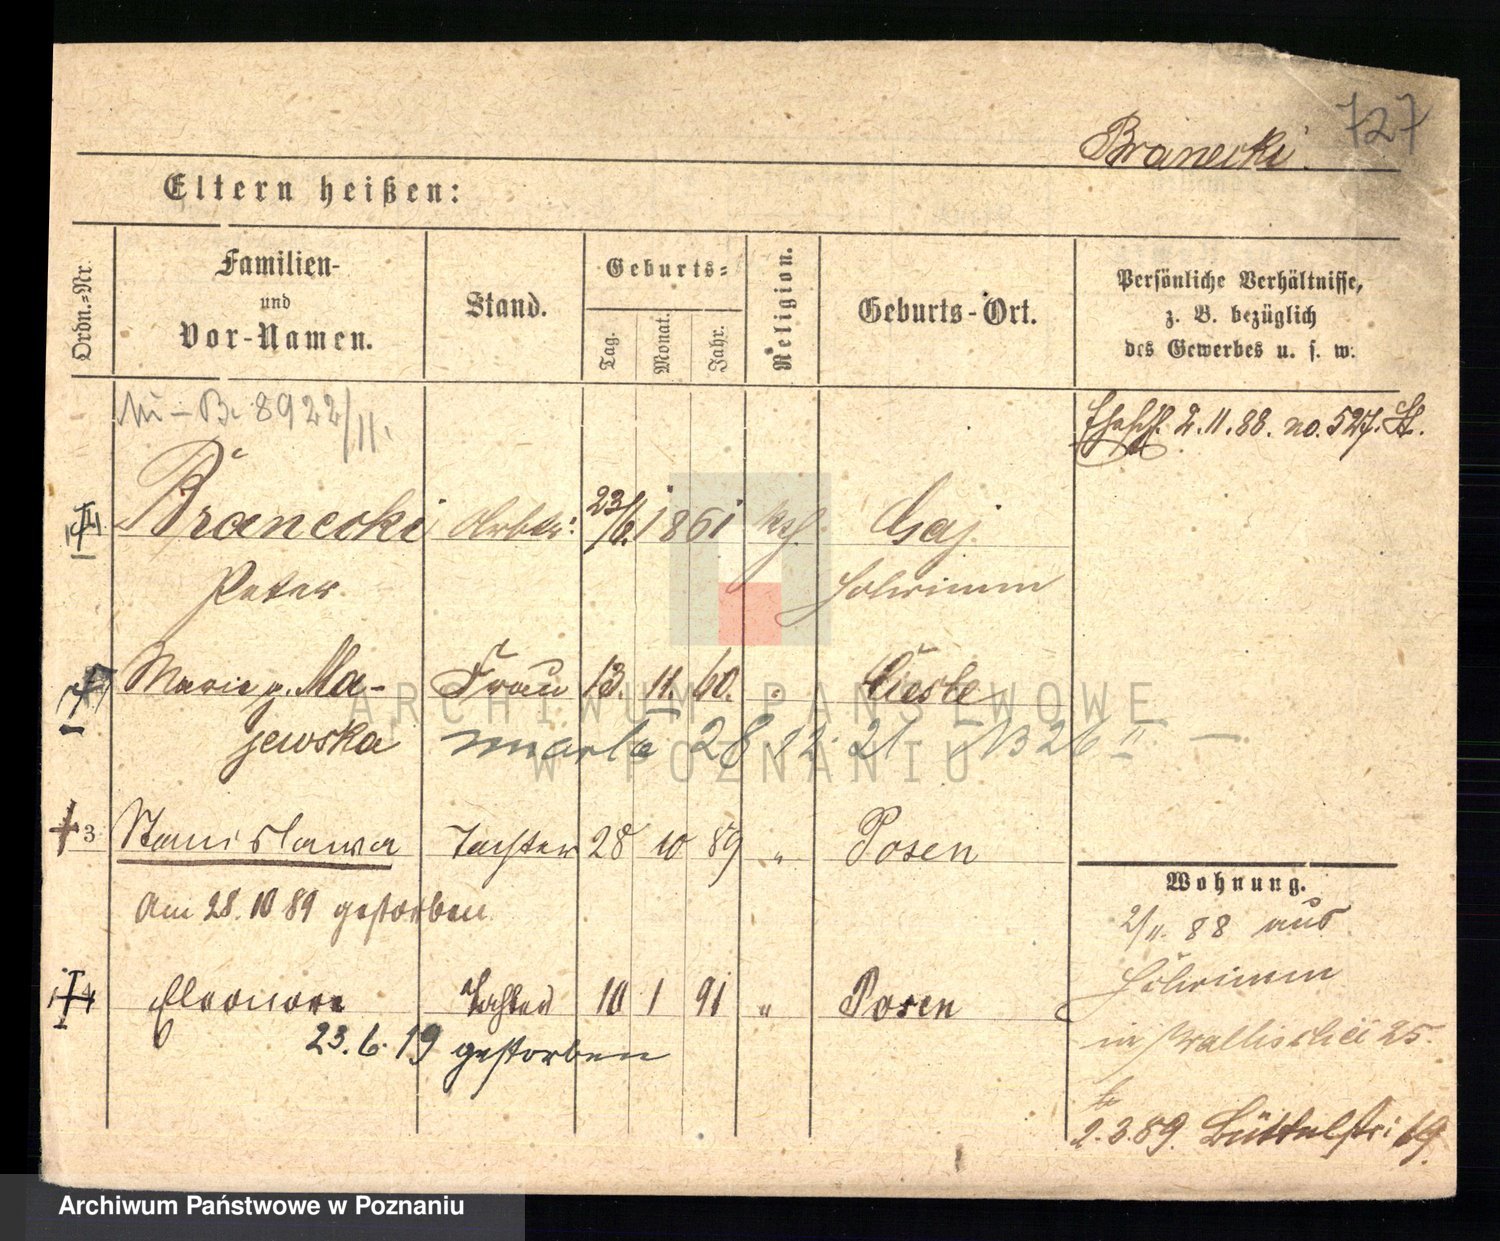 727
Branecki.
Eltern heißen:
Ordn.=Nr.
Familien-
und
Vor-Namen.
Stand.
Geburts=
Tag.
Monat.
Jahr.
Religion.
Geburts-Ort.
Persönliche Verhältnisse,
z. B. bezüglich
des Gewerbes u. s. w.
8922/11.
2.11.88. no. 527. St.
Branecki
23/6. 1861 Gaj
Peter
Marie g. Ma- Frau 13. 11. 60. "
jewska umarła 28 12 21
3 Stanislawa Tochter 28 10 89 " Posen
Am 28. 10 89 gestorben
4 Eleonore Tochter 10 1 91 " Posen
23. 6. 19 gestorben
Wohnung.
2/11. 88 aus
in Wallischei 25.
2. 3. 89. Büttelstr: 19.
ARCHIWUM PAŃSTWOWE
W POZNANIU
Archiwum Państwowe w Poznaniu